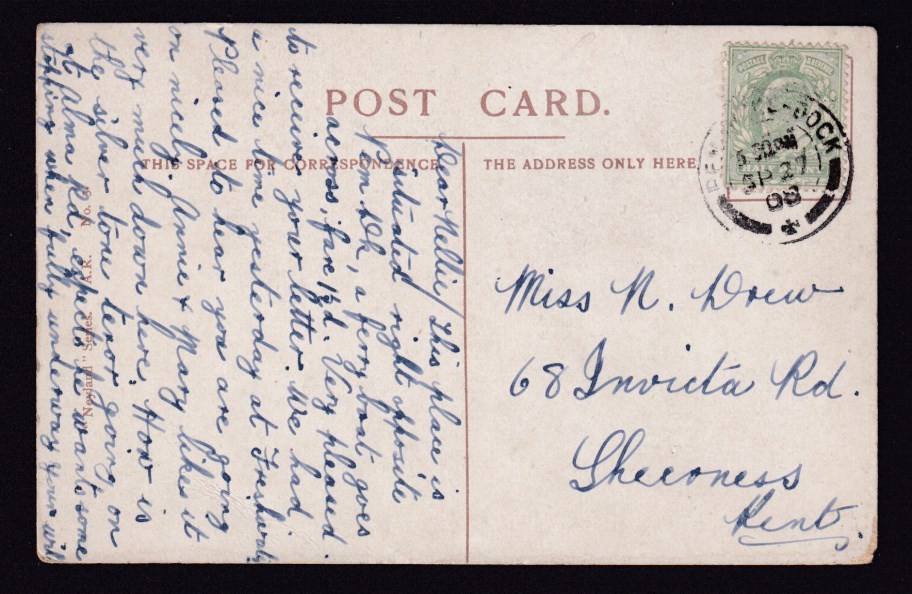 POST CARD.
THIS SPACE FOR CORRESPONDENCE
THE ADDRESS ONLY HERE.
DOCK
SP 27
08
Miss N. Drew
68 Invicta Rd.
Sheerness
Kent.
Dear Nellie / This place is
situated right opposite
Pem Dk, a ferry boat goes
across, fare 1½d. Very pleased
to receive your letter. We had
a nice time yesterday at
Pleased to hear you are going
on nicely. Annie & Mary likes it
very much down here. How is
the silver tone tenor going on
at Alma Rd, expects he wants some
stopping when fully underway. yours
"Neyland" Series.